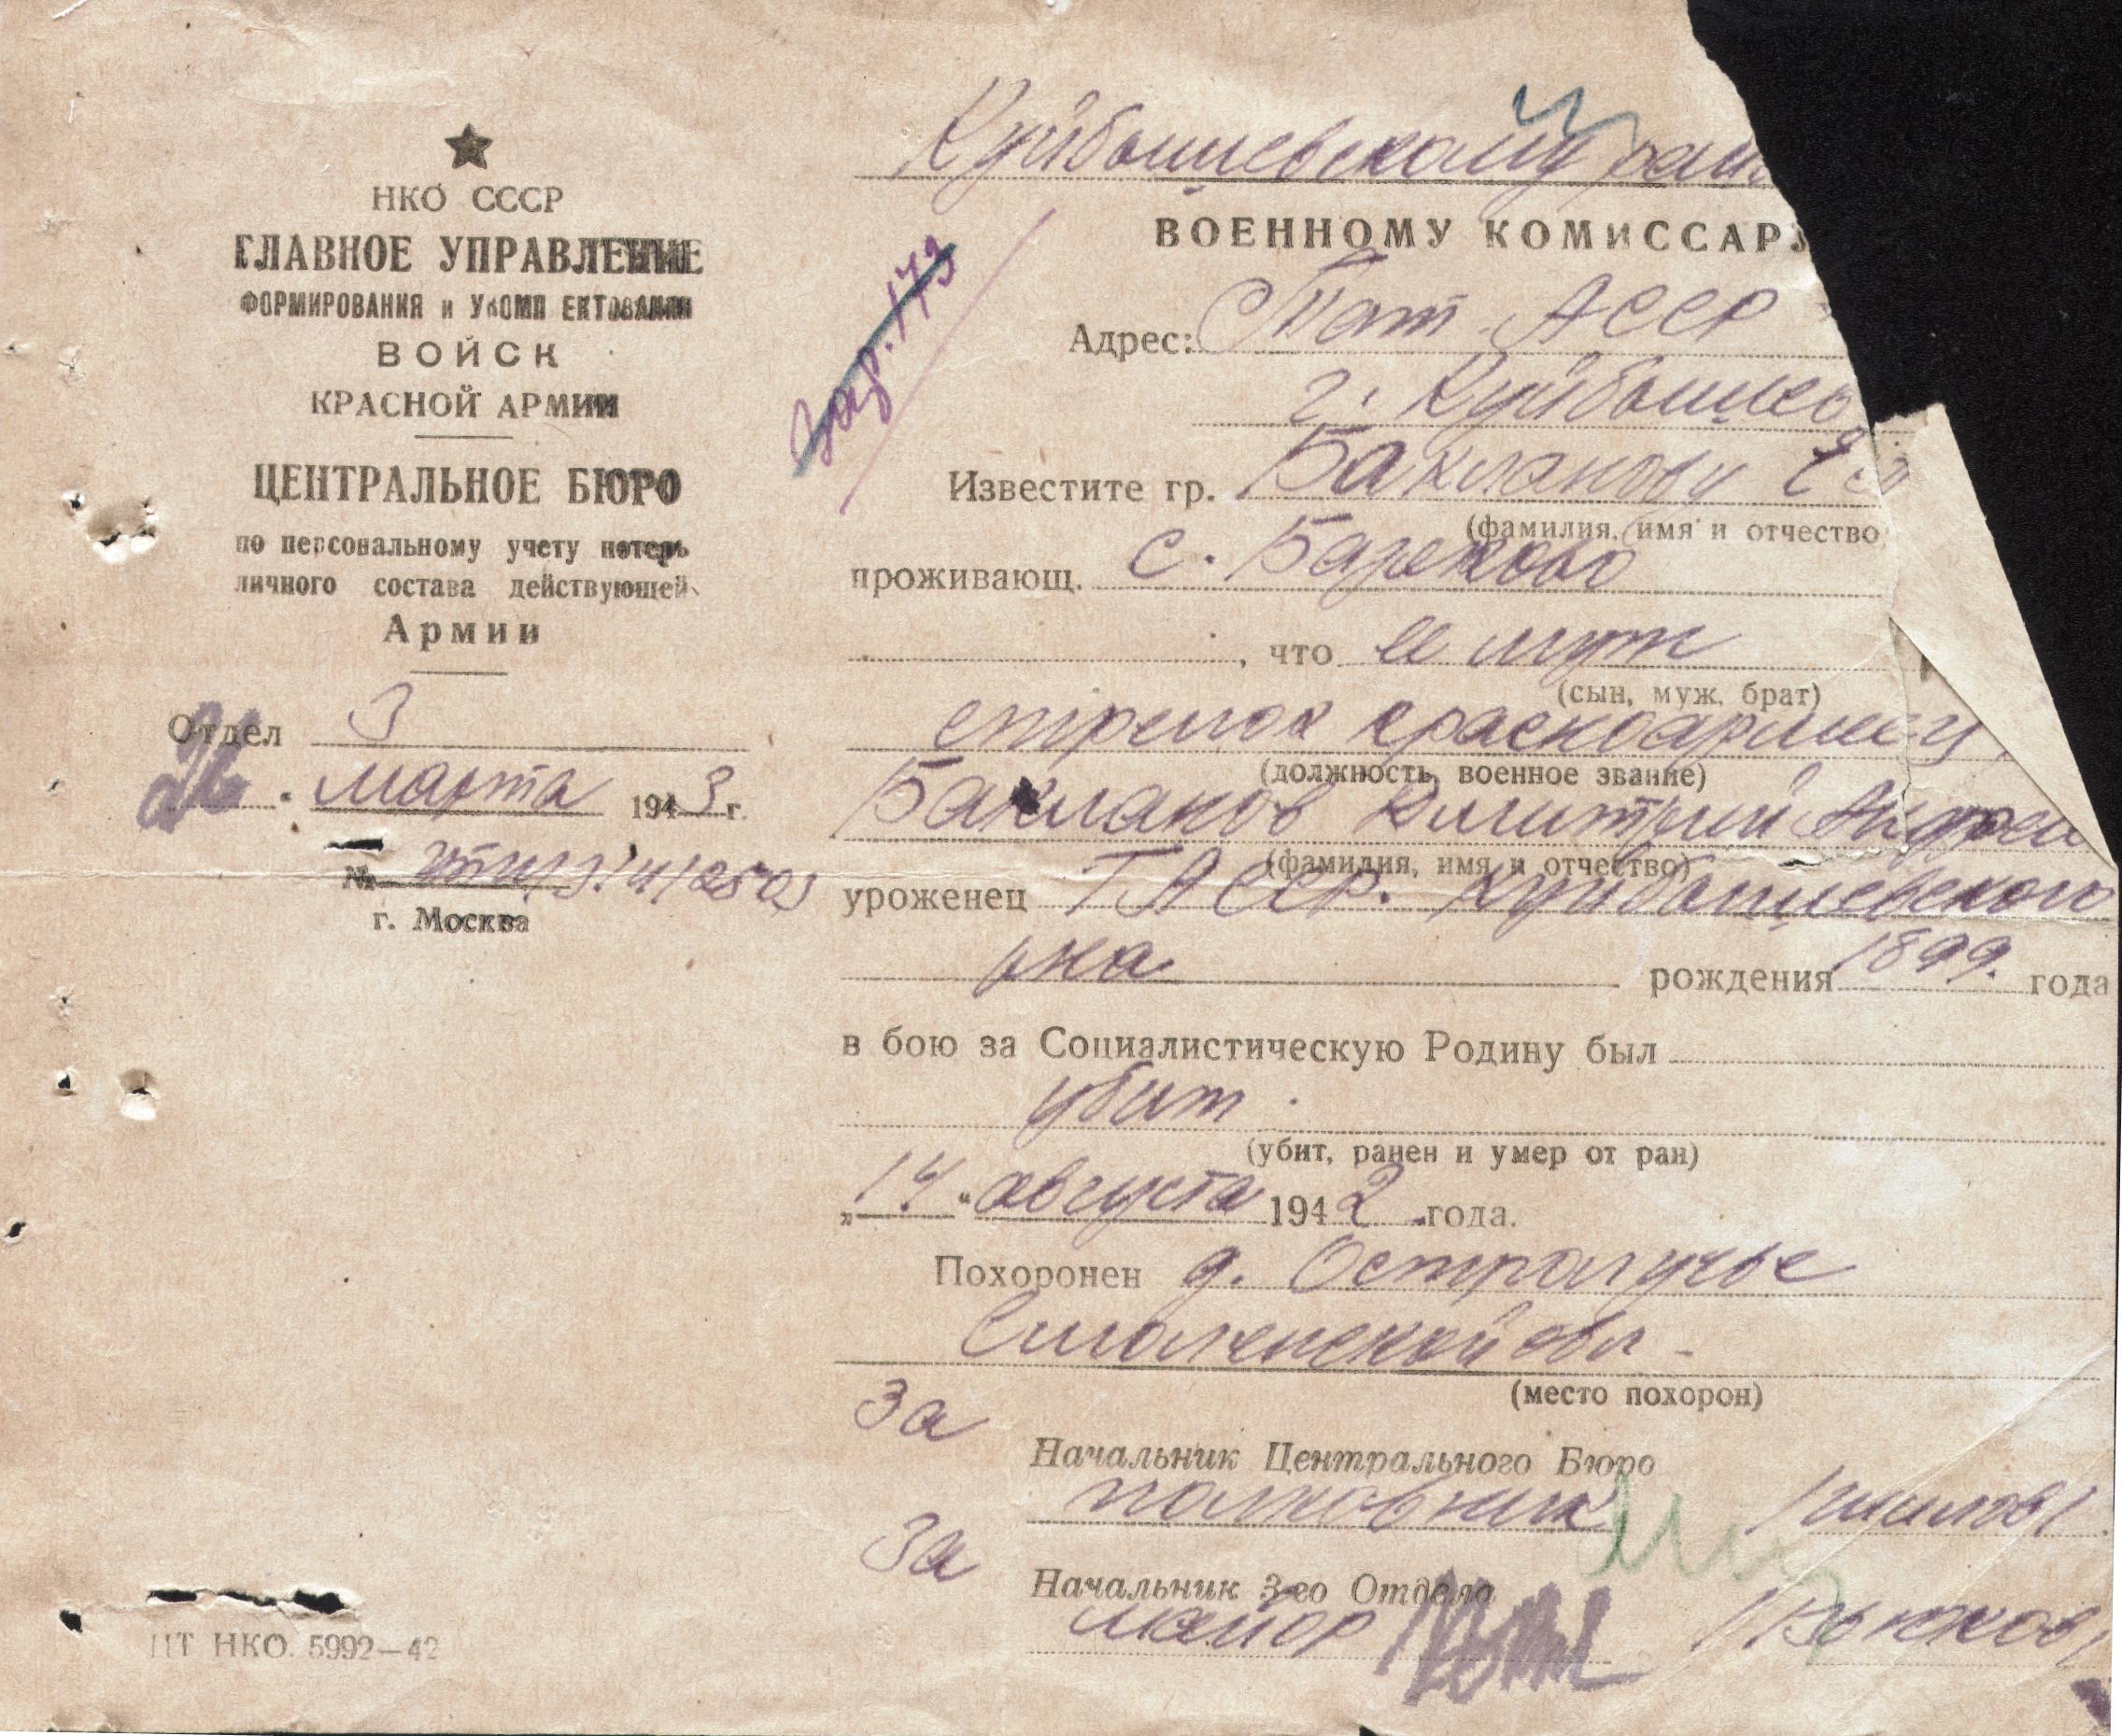 НКО СССР
ГЛАВНОЕ УПРАВЛЕНИЕ
ФОРМИРОВАНИЯ и УКОМП ЕКТОВАНИЯ
ВОЙСК
КРАСНОЙ АРМИИ
ЦЕНТРАЛЬНОЕ БЮРО
по персональному учету потерь
личного состава действующей
Армии
Отдел 3
26 " марта 1943 г.
№
г. Москва
ПТ НКО. 5992—42
зар. 173
Куйбышевскому
ВОЕННОМУ КОМИССАРУ
Адрес: Тат. АССР
г. Куйбышев
Известите гр. Бакланову
(фамилия, имя и отчество
проживающ. с. Базяково
, что ее муж
(сын, муж, брат)
стрелок красноармеец
(должность, военное звание)
Бакланов Дмитрий Андрее
(фамилия, имя и отчество)
уроженец ТАССР. Куйбышевского
рна рождения 1899. года
в бою за Социалистическую Родину был
убит.
(убит, ранен и умер от ран)
„14" августа 1942 года.
Похоронен д. Остролучье
Смоленской обл -
(место похорон)
За
Начальник Центрального Бюро
полковник /Шилов/
За
Начальник 3-го Отдела
майор